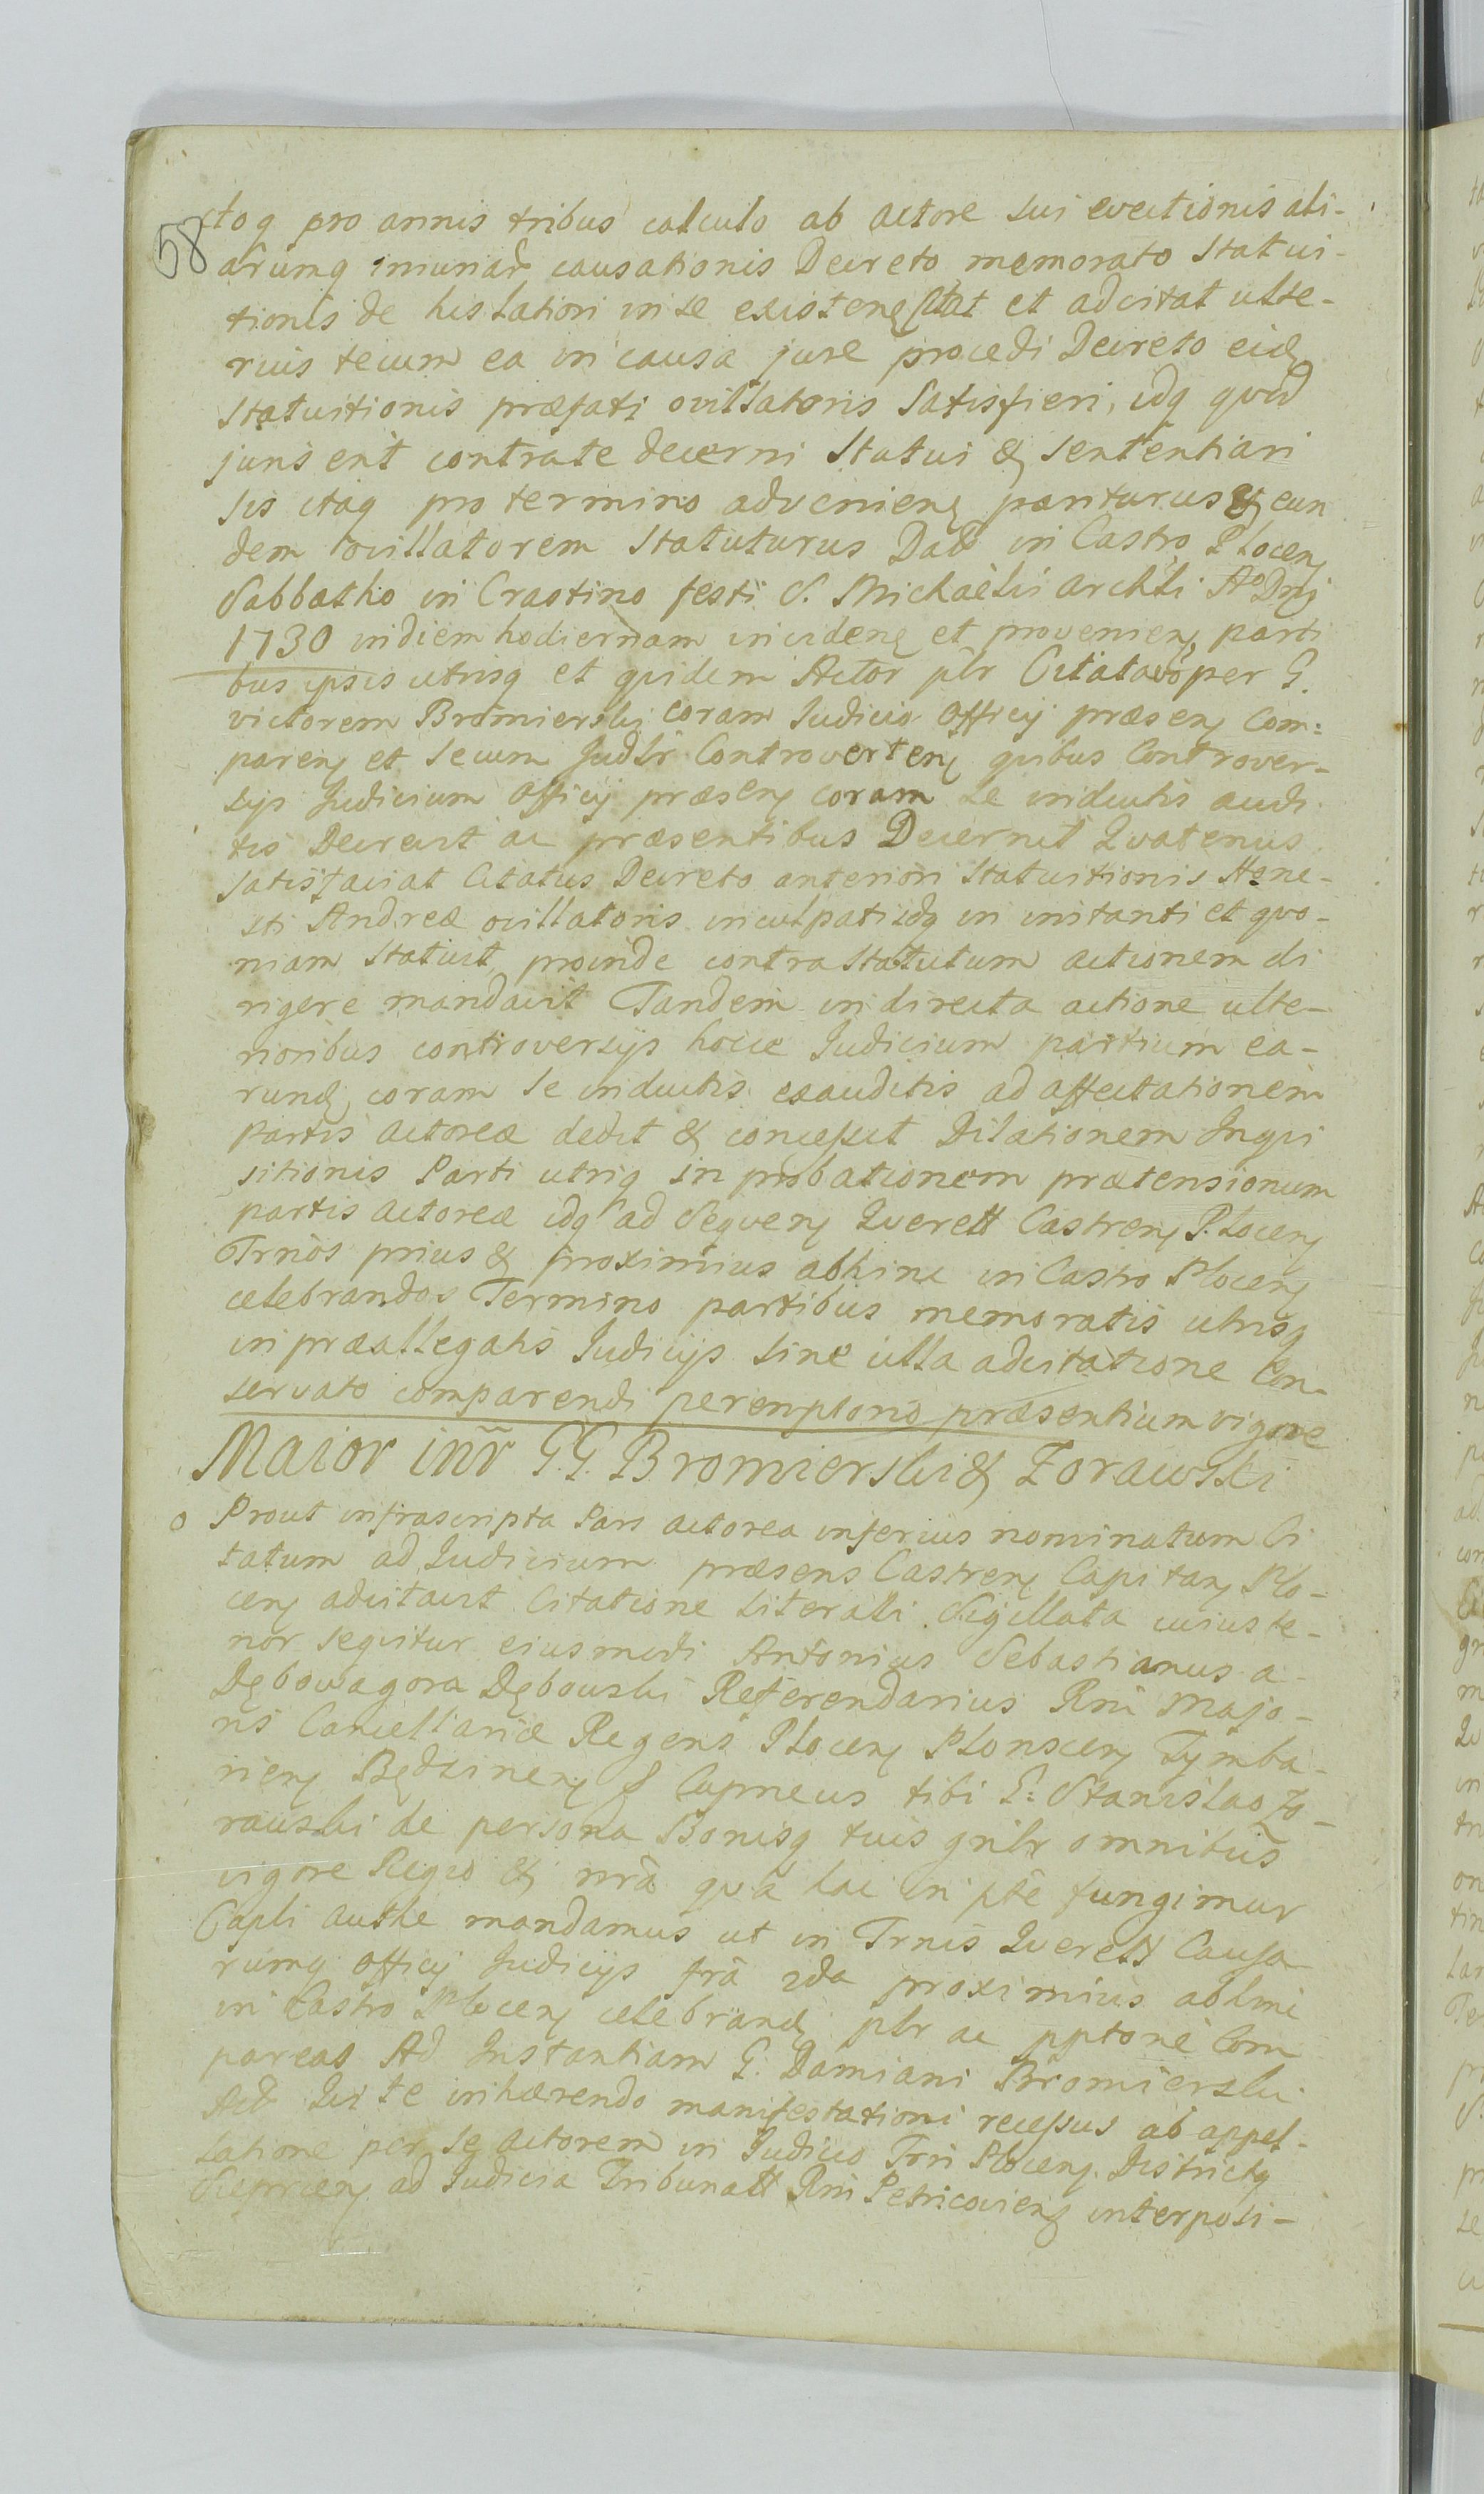 58
ctoq pro annis tribus calculo ab actore sui evectionis ali-
arumq iniuriar causationis Decreto memorato Statui-
tionis de his latiori in se existenz citat et adcitat ulte-
rius tecum ea in causa jure procedi Decreto eidz
Statuitionis præfati ovillatoris Satisfieri, idq quod
juris erit contra te decerni Statui & Sententiari
Sis itaq pro termino advenienz pariturus & eun
dem ovillatorem Statuturus Dat in Castro Plocenz
Sabbatho in Crastino festi S. Michaëlis Archli Ao Dni
1730 in diem hodiernam incidenz et provenienz parti
bus ipsis utrisq et quidem Actor plr Citatavo per G.
victorem Bromierski coram Judicio Officij præsenz Com:
parenz et Secum Judlr Controvertenz quibus Controver-
sijs Judicium Officij præsenz coram se inductis audi
tis Decrevit ac præsentibus Decernit Quatenus
Satisfaciat Citatus Decreto anteriori Statuitionis Hone-
sti Andreæ ovillatoris inculpati idq in instanti et quo-
niam Statuit proinde contra Statutum actionem di
rigere mandavit Tandem in directa actione ulte-
rioribus controversijs hocce Judicium partium ea-
rundz coram se inductis exauditis ad affectationem
partis actoreæ dedit & concessit Dilationem Inqui
sitionis Parti utriq in probationem prætensionum
partis actoreæ idq ad Sequenz Querell Castrenz Plocenz
Trnos prius & proximius abhinc in Castro Plocenz
celebrandos Termino partibus memoratis utrisq
in præallegatis Judicijs sine ulla adcitatione Con-
servato comparendi peremptorio præsentium vigore
Maior inr G.G. Bromierski & Zorawski
o Prout infrascripta Pars actorea inferius nominatum Ci
tatum ad Judicium præsens Castrenz Capitanz Plo-
cenz adcitavit Citatione Literali Sigillata cuius te-
nor Sequitur eiusmodi Antonius Sebastianus a
Dębowagora Dębowski Referendarius Rni Majo-
ris Cancellariæ Regens Plocenz Plonscenz Tymba-
rienz Będzinenz & Cupmeus tibi G: Stanislao Zo-
rawski de persona Bonisq tuis gnlr omnibus
vigore Regio & nrã quâ hac in pte fungimur
Capli authe mandamus ut in Trnis Querell Causa
rumq Officij Judicijs frã 2da proximius abhinc
in Castro Plocenz celebrandz plr ac pptorie Com
pareas Ad Instantiam G. Damiani Bromierski
Act Qui te inhærendo manifestationi recessus ab appel-
latione per Se actorem in Judicio Trri Plocenz Districtq
Sieprcenz ad Judicia Tribunall Rni Petricovienz interposi-